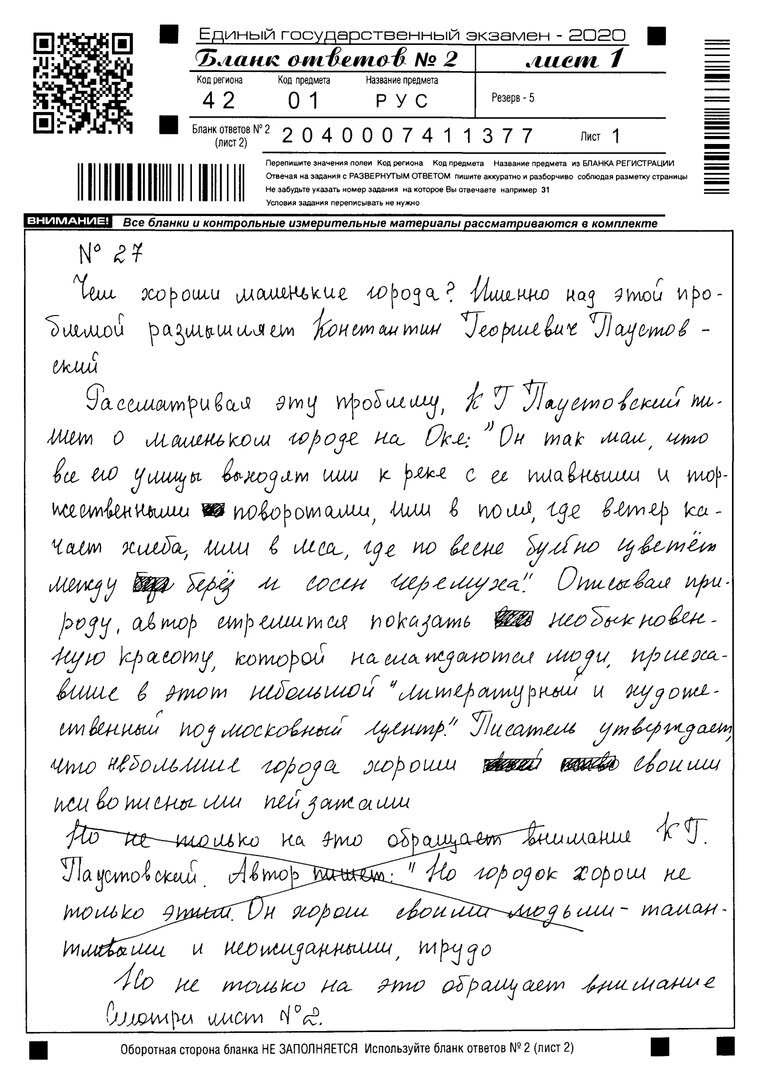 Единый государственный экзамен - 2020
Бланк ответов № 2 лист 1
Код региона Код предмета Название предмета
42 01 РУС Резерв - 5
Бланк ответов № 2 (лист 2) 2040007411377 Лист 1
Перепишите значения полей Код региона Код предмета Название предмета из БЛАНКА РЕГИСТРАЦИИ
Отвечая на задания с РАЗВЕРНУТЫМ ОТВЕТОМ пишите аккуратно и разборчиво соблюдая разметку страницы
Не забудьте указать номер задания на которое Вы отвечаете например 31
Условия задания переписывать не нужно
ВНИМАНИЕ! Все бланки и контрольные измерительные материалы рассматриваются в комплекте
№ 27
Чем хороши маленькие города? Именно над этой про-
блемой размышляет Константин Георгиевич Паустов-
ский
Рассматривая эту проблему, К Г Паустовский пи-
шет о маленьком городе на Оке: "Он так мал, что
все его улицы выходят или к реке с ее плавными и тор-
жественными поворотами, или в поля, где ветер ка-
чает хлеба, или в леса, где по весне буйно цветёт
между берёз и сосен черемуха". Описывая при-
роду, автор стремится показать необыкновен-
ную красоту, которой наслаждаются люди, приеха-
вшие в этот небольшой "литературный и художе-
ственный подмосковный центр." Писатель утверждает,
что небольшие города хороши своими
живописными пейзажами
Но не только на это обращает внимание К Г.
Паустовский. Автор пишет: "Но городок хорош не
только этим. Он хорош своими людьми - талан-
тливыми и неожиданными, трудо
Но не только на это обращает внимание
Смотри лист №2.
Оборотная сторона бланка НЕ ЗАПОЛНЯЕТСЯ Используйте бланк ответов № 2 (лист 2)